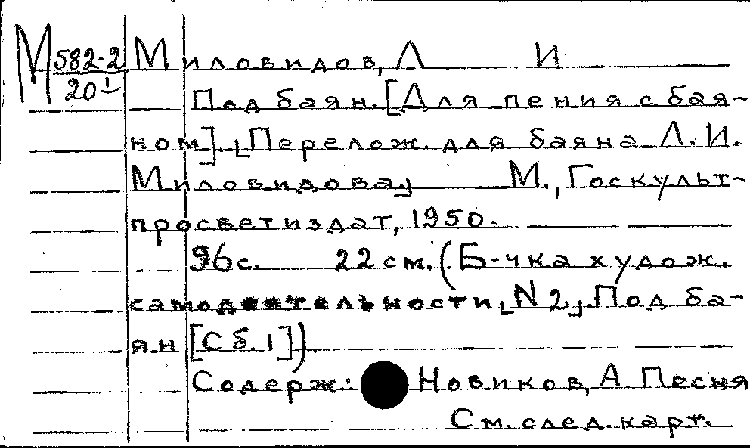 М 582-2 Миловидов, Л И
20 I
Под баян. [Для пения с бая-
ном]. [Перелож. для баяна Л. И.
Миловидова] М., Госкульт-
просветиздат, 1950.
96 с. 22 см. (Б-чка худож.
самодеятельности [N 2] Под ба-
ян [Сб. 1])
Содерж: Новиков, А Песня
См. след. карт.